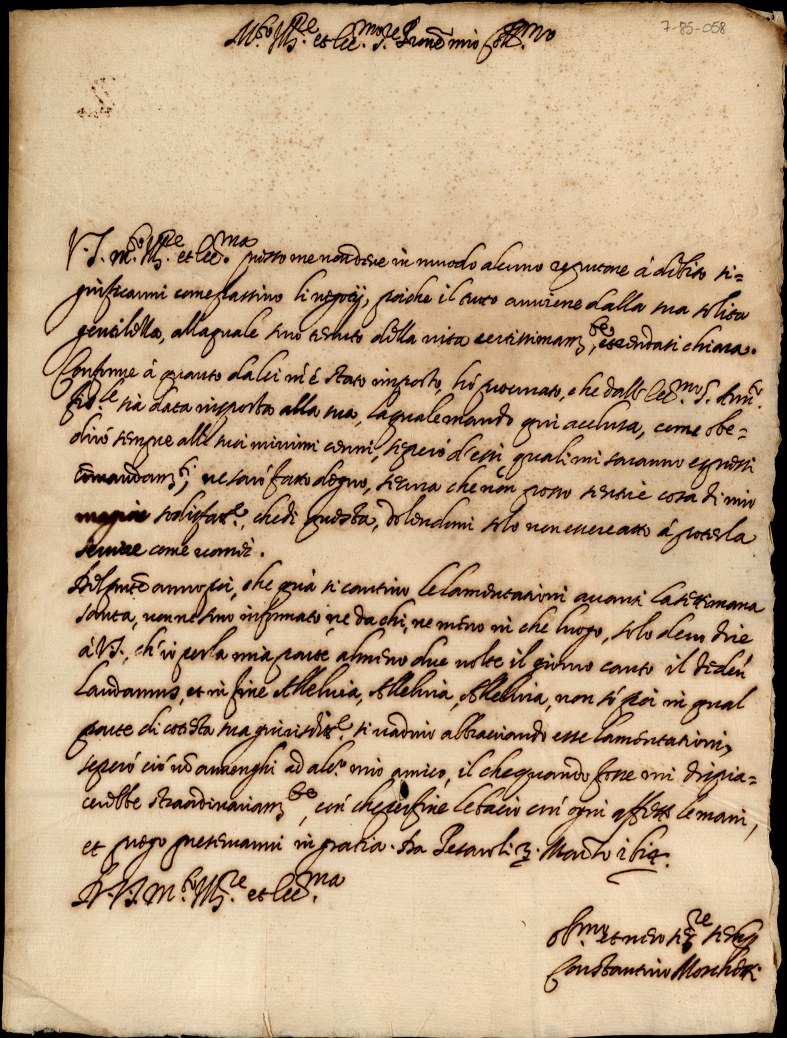 7-85-058
M.to Ill.re et Ecc.mo S.re P.rone mio Coll.mo
V.S. m.to Ill.re et Ecc.ma meco non deve in muodo alcuno à debito si=
gnificarmi come passino li negotij, poiche il tutto avviene dalla sua solita
gentilezza, allaquale sono tenuto della vita certissimam.te,
Conforme à quanto da lei m'è stato imposto, hò procurato, che dall'Ecc.mo S.
sia data risposta alla sua, laquale mando qui acclusa, come obe=
dirò sempre alli suoi minimi cenni, se però d'essi, quali mi saranno espressi
comandam.ti, ne sarò fatto degno, senza che non posso sentire cosa di mio
magior sodisfat.e, che di questa, dolendomi solo non essere atto à poterla
servire come vorrei.
Del anno poi, che quà si cantino le lamentationi avanti la settimana
santa, non ne sono informato, ne da chi, ne meno in che luogo, solo devo dire
à V.S., ch'io per la mia parte almeno due volte il giorno canto il Tedeu
laudamus, et in fine Alleluia, Alleluia, Alleluia, non sò poi in qual
parte di cotesta sua giurisdit.e si vadino abbracciando esse lamentationi,
se però ciò nō avvenghi ad alc.o mio amico, il che quando fosse mi dispia=
cerebbe straordinariam.te, con che per fine le bacio con ogni affetto le mani,
et prego pretermarmi in gratia. Da li 3. Marzo
D. V.S. M.to Ill.re et Ecc.ma
obl.mo et vero ser.re
Constantino